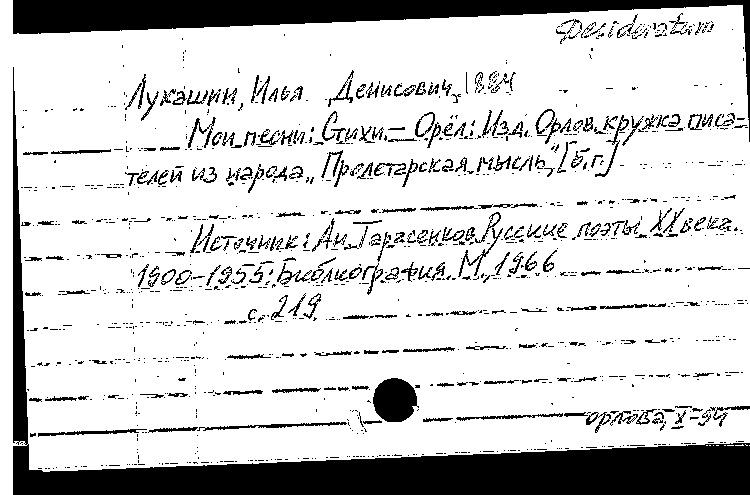 Desideratum
Лукашин, Илья Денисович, 1884
Мои песни: Стихи. — Орёл: Изд. Орлов. кружка писа-
телей из народа „Пролетарская мысль", [б.г.]
Источник: Ан. Тарасенков. Русские поэты XX века.
1900-1955: Библиография. М., 1966
с. 219
орлова, X-94